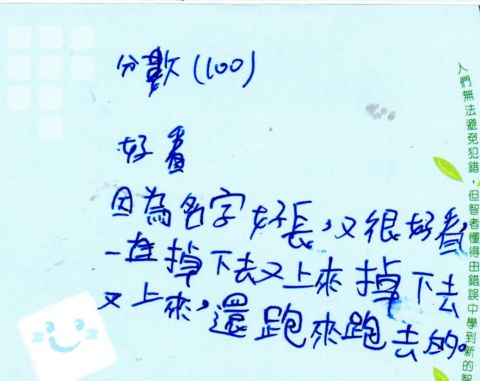 分數(100)
好看
因為名字好長,又很好看,
一直掉下去又上來掉下去
又上來,還跑來跑去的。
人們無法避免犯錯,但智者懂得由錯誤中學到新的智